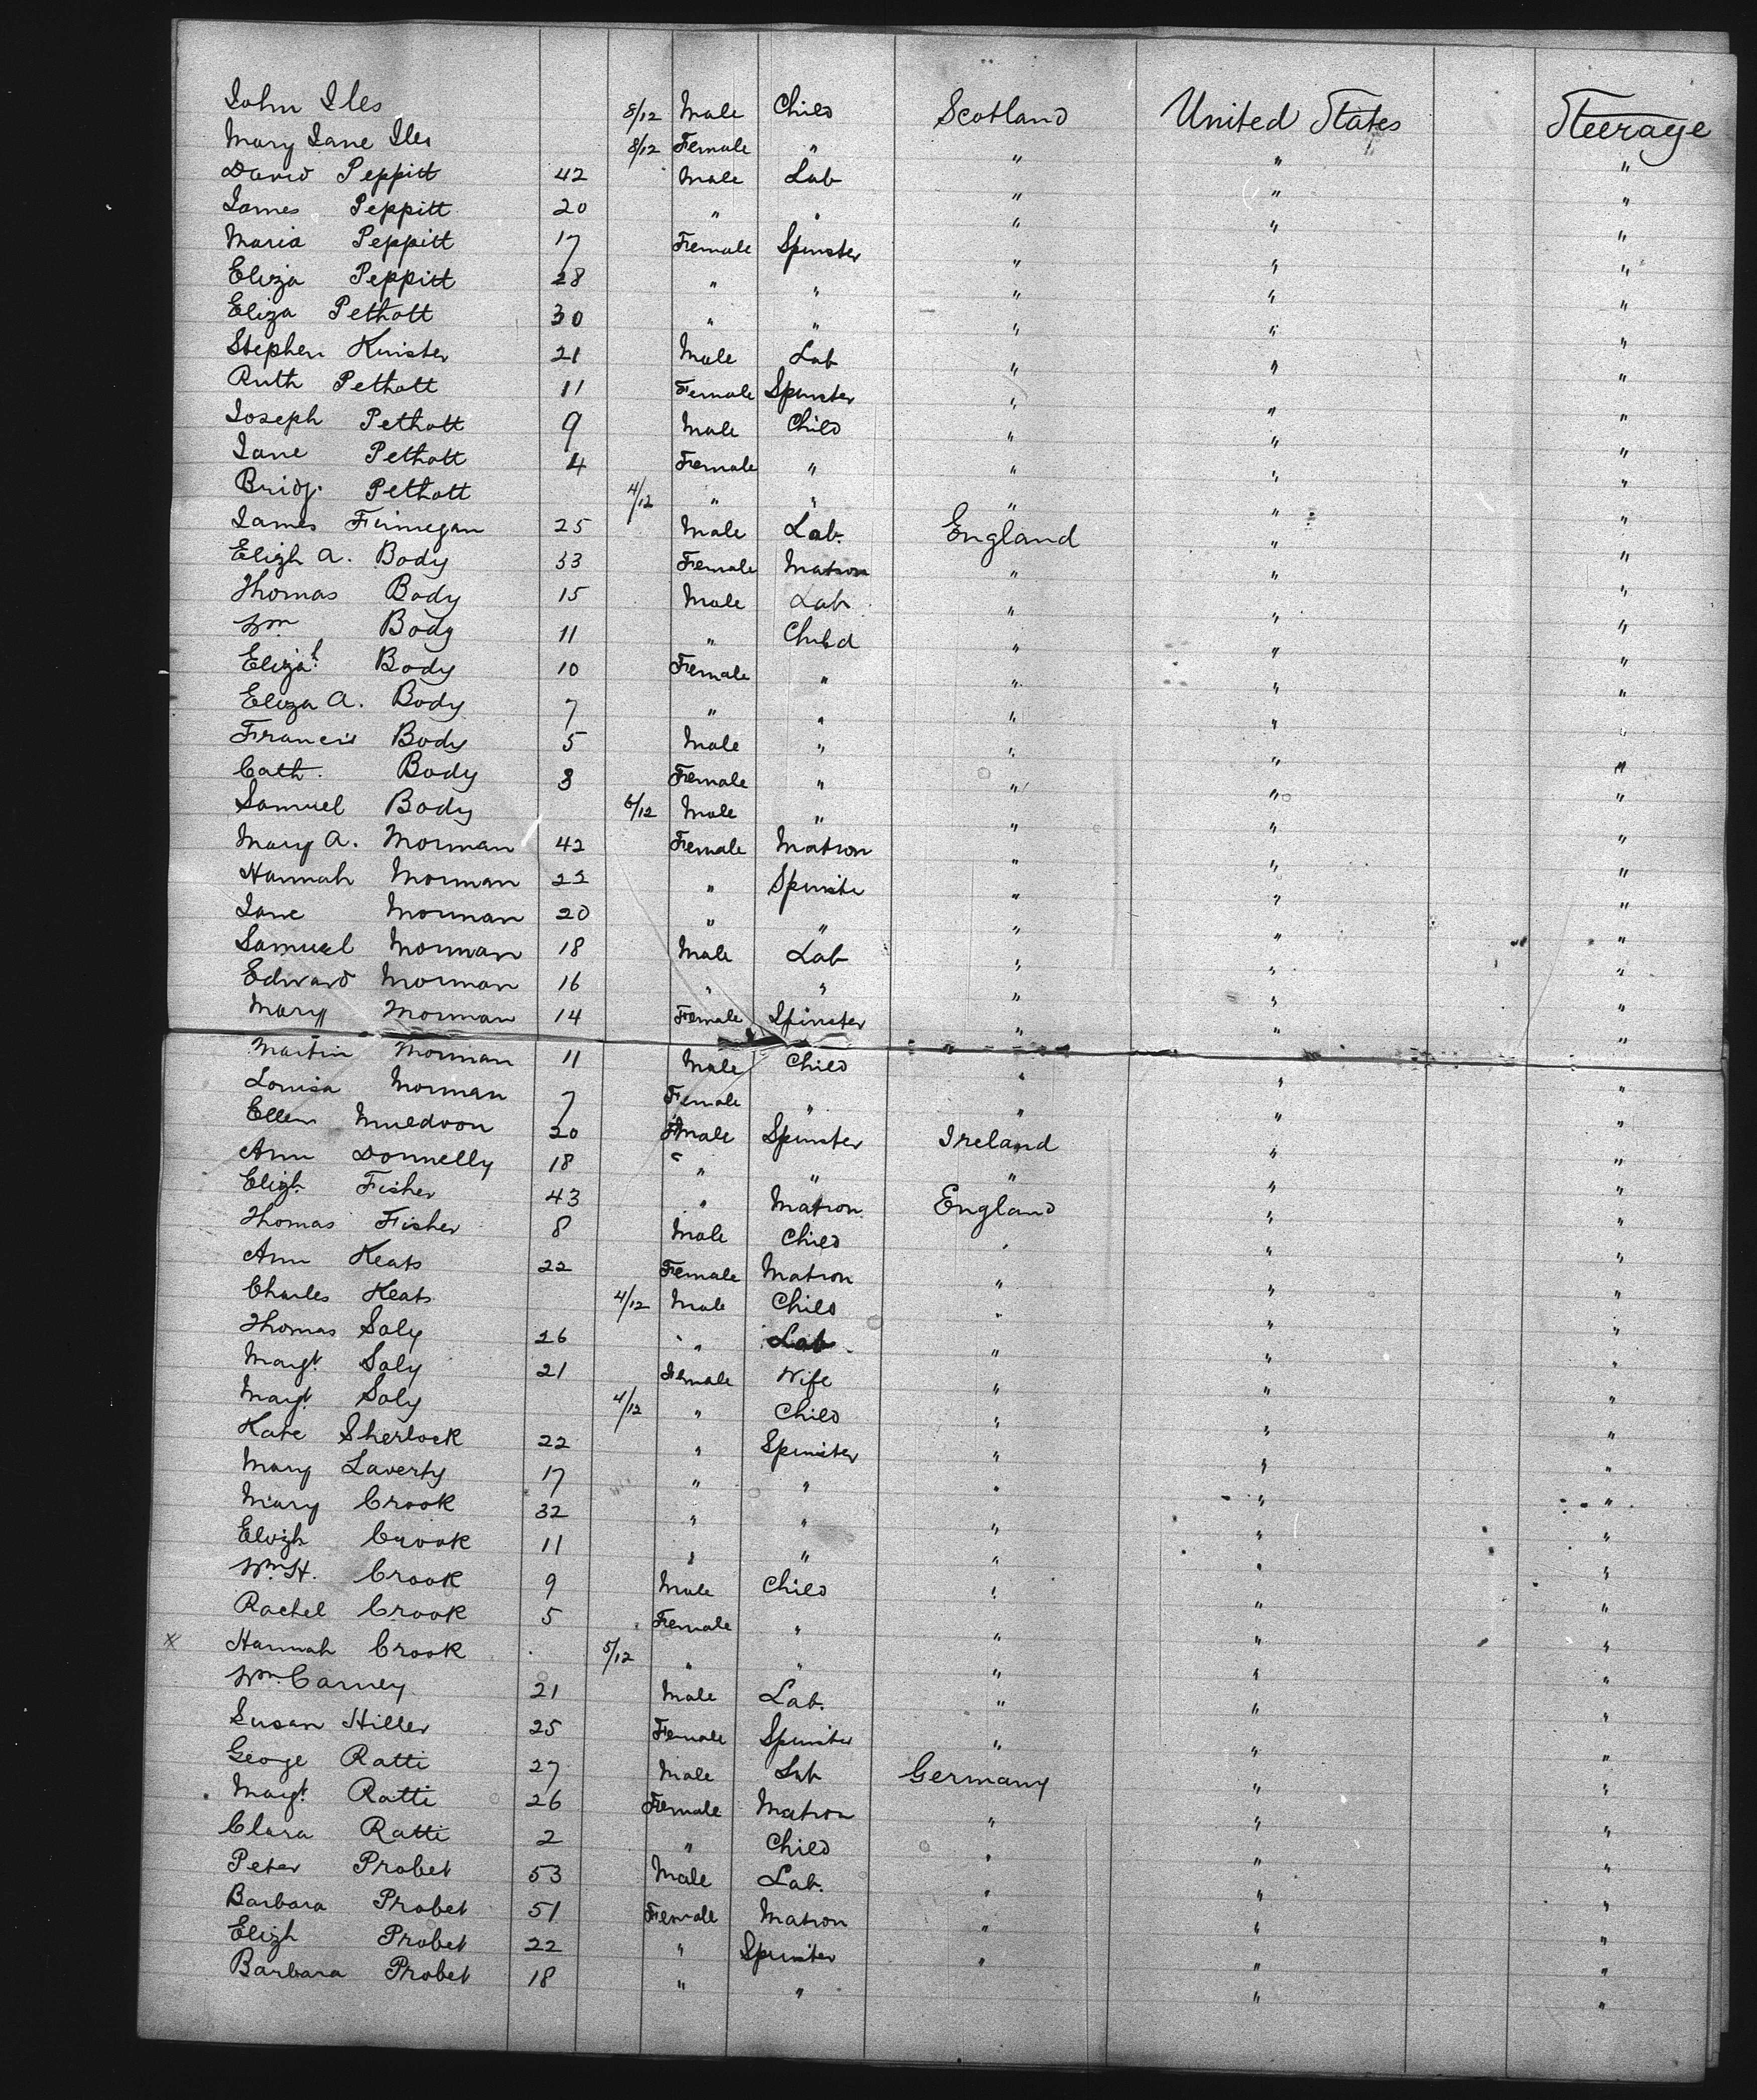 John Iles 8/12 Male Child Scotland United States Steerage
Mary Jane Iles 8/12 Female " " " "
David Peppitt 42 Male Lab " " "
James Peppitt 20 " " " " "
Maria Peppitt 17 Female Spinster " " "
Eliza Peppitt 28 " " " " "
Eliza Pethott 30 " " " " "
Stephen Knister 21 Male Lab " " "
Ruth Pethott 11 Female Spinster " " "
Joseph Pethott 9 Male Child " " "
Jane Pethott 4 Female " " " "
Bridg. Pethott 4/12 " " " " "
James Finnegan 25 Male Lab. England " "
Elizh A. Body 33 Female Matron " " "
Thomas Body 15 Male Lab " " "
Wm Body 11 " Child " " "
Elizah. Body 10 Female " " " "
Eliza A. Body 7 " " " " "
Francis Body 5 Male " " " "
Cath. Body 3 Female " " " "
Samuel Body 6/12 Male " " " "
Mary A. Morman 42 Female Matron " " "
Hannah Morman 22 " Spinster " " "
Jane Morman 20 " " " " "
Samuel Morman 18 Male Lab " " "
Edward Morman 16 " " " " "
Mary Morman 14 Female Spinster " " "
Martin Morman 11 Male Child " " "
Louisa Morman 7 Female " " " "
Ellen Muldoon 20 Female Spinster Ireland " "
Ann Donnelly 18 " " " " "
Elizh Fisher 43 " Matron England " "
Thomas Fisher 8 Male Child " " "
Ann Keats 22 Female Matron " " "
Charles Keats 4/12 Male Child " " "
Thomas Soly 26 " Lab " " "
Margt. Soly 21 Female Wife " " "
Margt. Soly 4/12 " Child " " "
Kate Sherlock 22 " Spinster " " "
Mary Laverty 17 " " " " "
Mary Crook 32 " " " " "
Elizh Crook 11 " " " " "
Wm. H. Crook 9 Male Child " " "
Rachel Crook 5 Female " " " "
x Hannah Crook 5/12 " " " " "
Wm. Carney 21 Male Lab. " " "
Susan Hiller 25 Female Spinster " " "
George Ratti 27 Male Lab Germany " "
Margt. Ratti 26 Female Matron " " "
Clara Ratti 2 " Child " " "
Peter Probet 53 Male Lab. " " "
Barbara Probet 51 Female Matron " " "
Elizh Probet 22 " Spinster " " "
Barbara Probet 18 " " " "